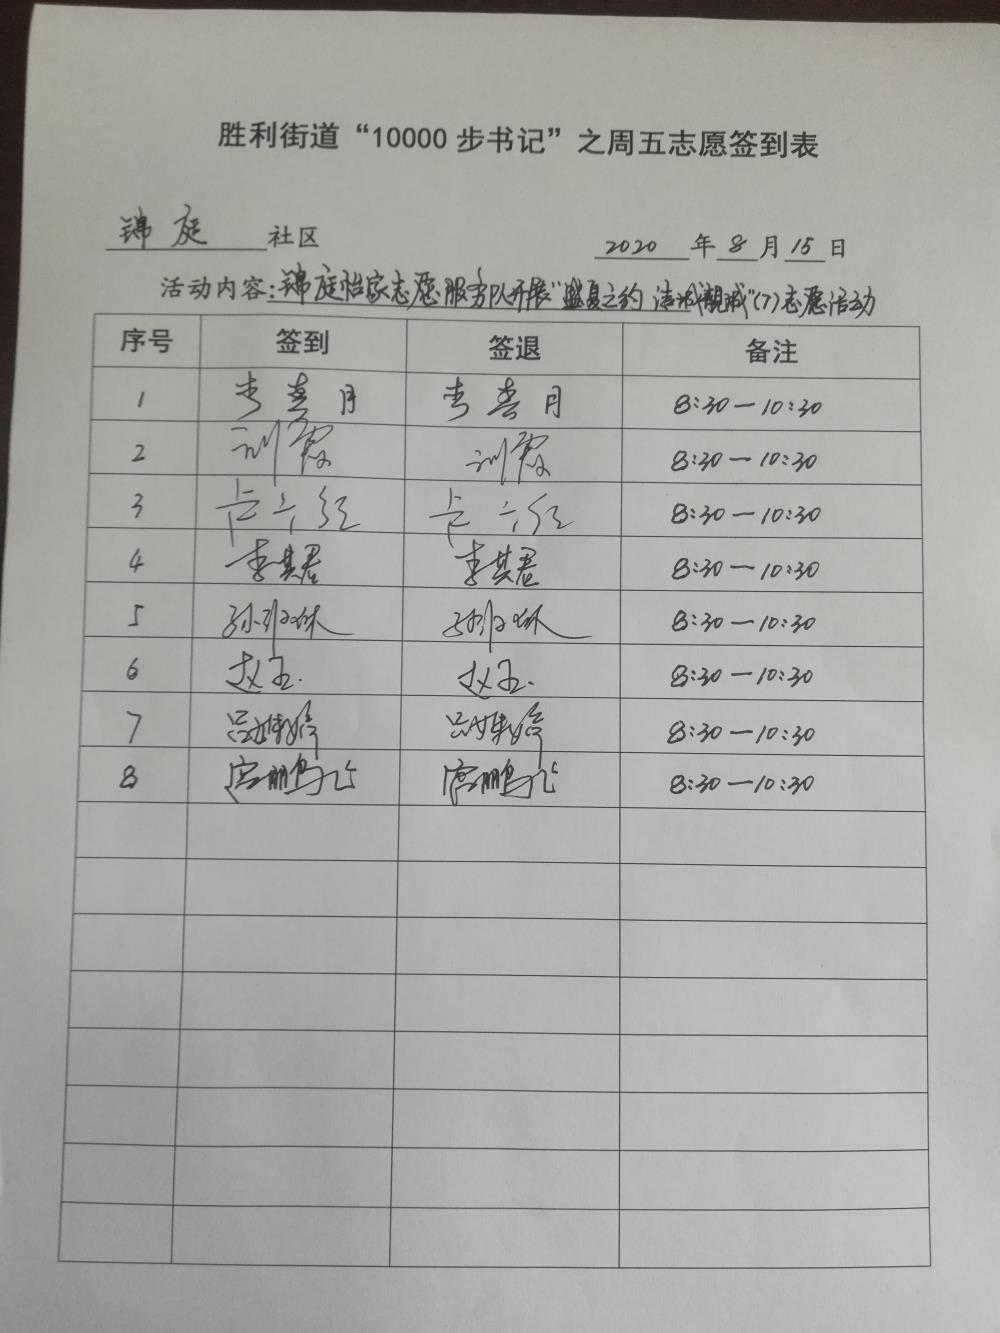 胜利街道“10000 步书记”之周五志愿签到表
锦庭 社区 2020 年 8 月 15 日
活动内容:锦庭怡家志愿服务队开展“盛夏之约 洁城靓城”(7)志愿活动
序号 签到 签退 备注
1 李喜月 李喜月 8:30—10:30
2 刘霞 刘霞 8:30—10:30
3 8:30—10:30
4 李其君 李其君 8:30—10:30
5 孙 孙 8:30—10:30
6 赵玉. 赵玉. 8:30—10:30
7 吕 婷 吕 婷 8:30—10:30
8 鹏飞 鹏飞 8:30—10:30